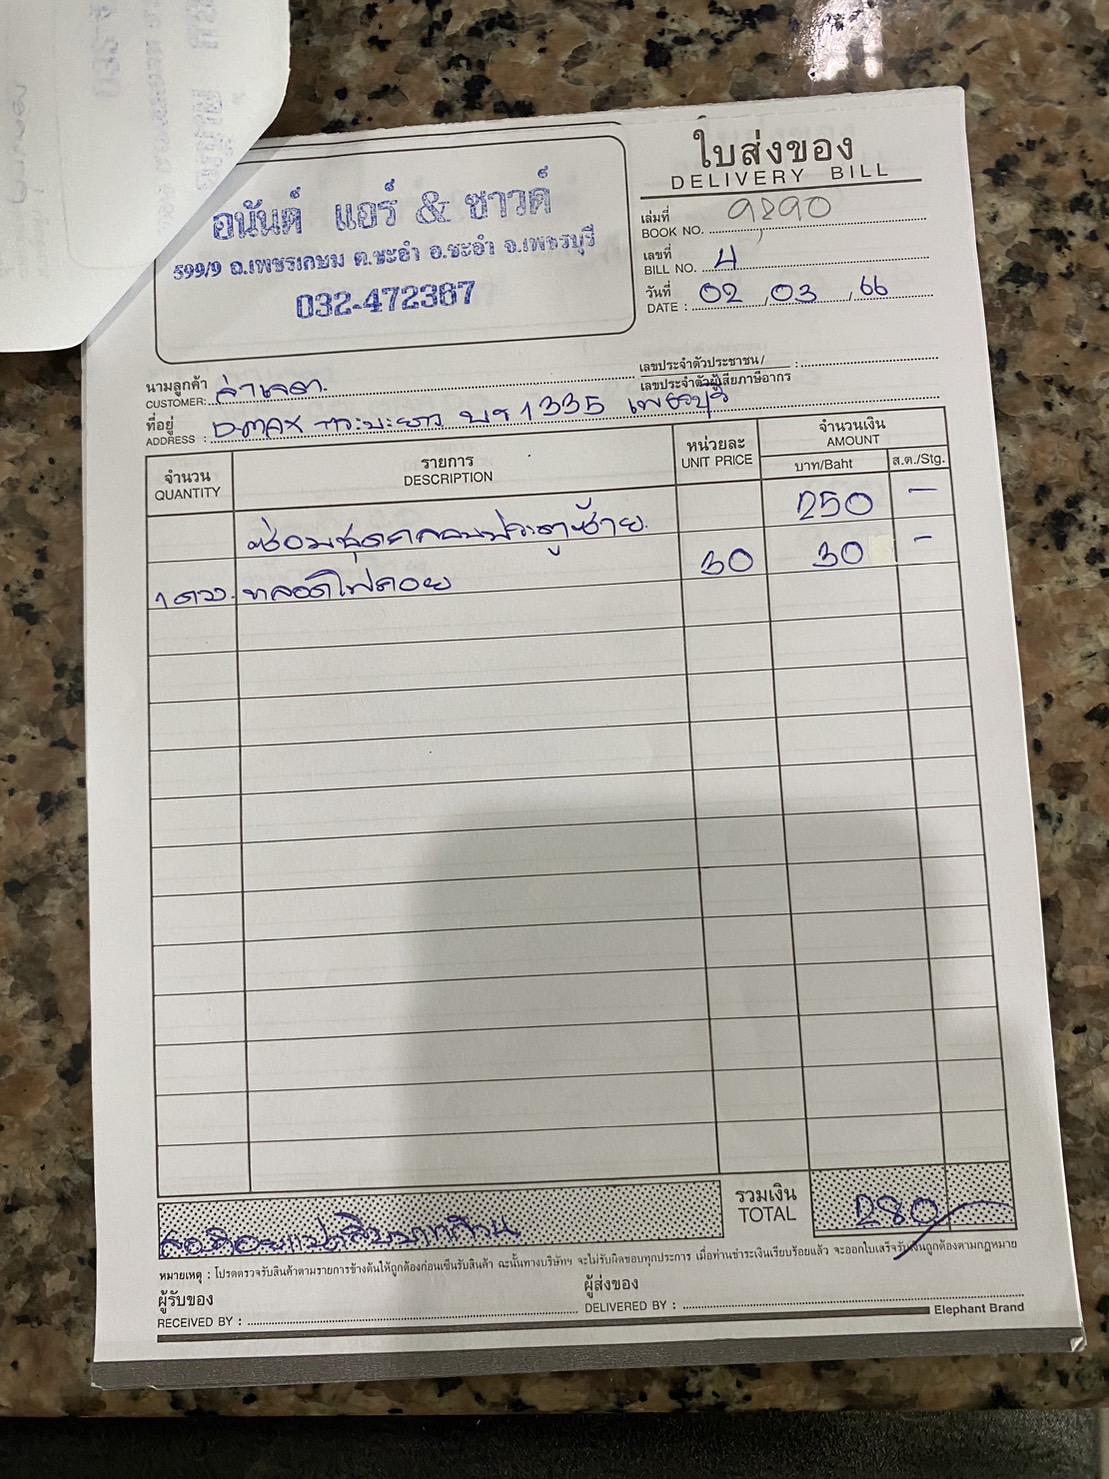 ใบส่งของ
DELIVERY BILL
อนันต์ แอร์ & ซาวด์
599/9 ถ.เพชรเกษม ต.ชะอำ อ.ชะอำ จ.เพชรบุรี
032-472367
เล่มที่
BOOK NO. 9290
เลขที่
BILL NO. 4
วันที่
DATE : 02 / 03 / 66
นามลูกค้า
CUSTOMER:
เลขประจำตัวประชาชน /
เลขประจำตัวผู้เสียภาษีอากร :
ที่อยู่
ADDRESS : D-MAX กระบะยาว บร 1335 เพชรบุรี
จำนวน
QUANTITY
รายการ
DESCRIPTION
หน่วยละ
UNIT PRICE
จำนวนเงิน
AMOUNT
บาท/Baht
ส.ต./Stg.
ซ่อมชุดกลอนประตูซ้าย 250 -
1 ดวง หลอดไฟคอย 30 30 -
สองร้อยแปดสิบบาทถ้วน
รวมเงิน
TOTAL
280
หมายเหตุ : โปรดตรวจรับสินค้าตามรายการข้างต้นให้ถูกต้องก่อนเซ็นรับสินค้า ฉะนั้นทางบริษัทฯ จะไม่รับผิดชอบทุกประการ เมื่อท่านชำระเงินเรียบร้อยแล้ว จะออกใบเสร็จรับเงินถูกต้องตามกฎหมาย
ผู้รับของ
RECEIVED BY :
ผู้ส่งของ
DELIVERED BY :
Elephant Brand